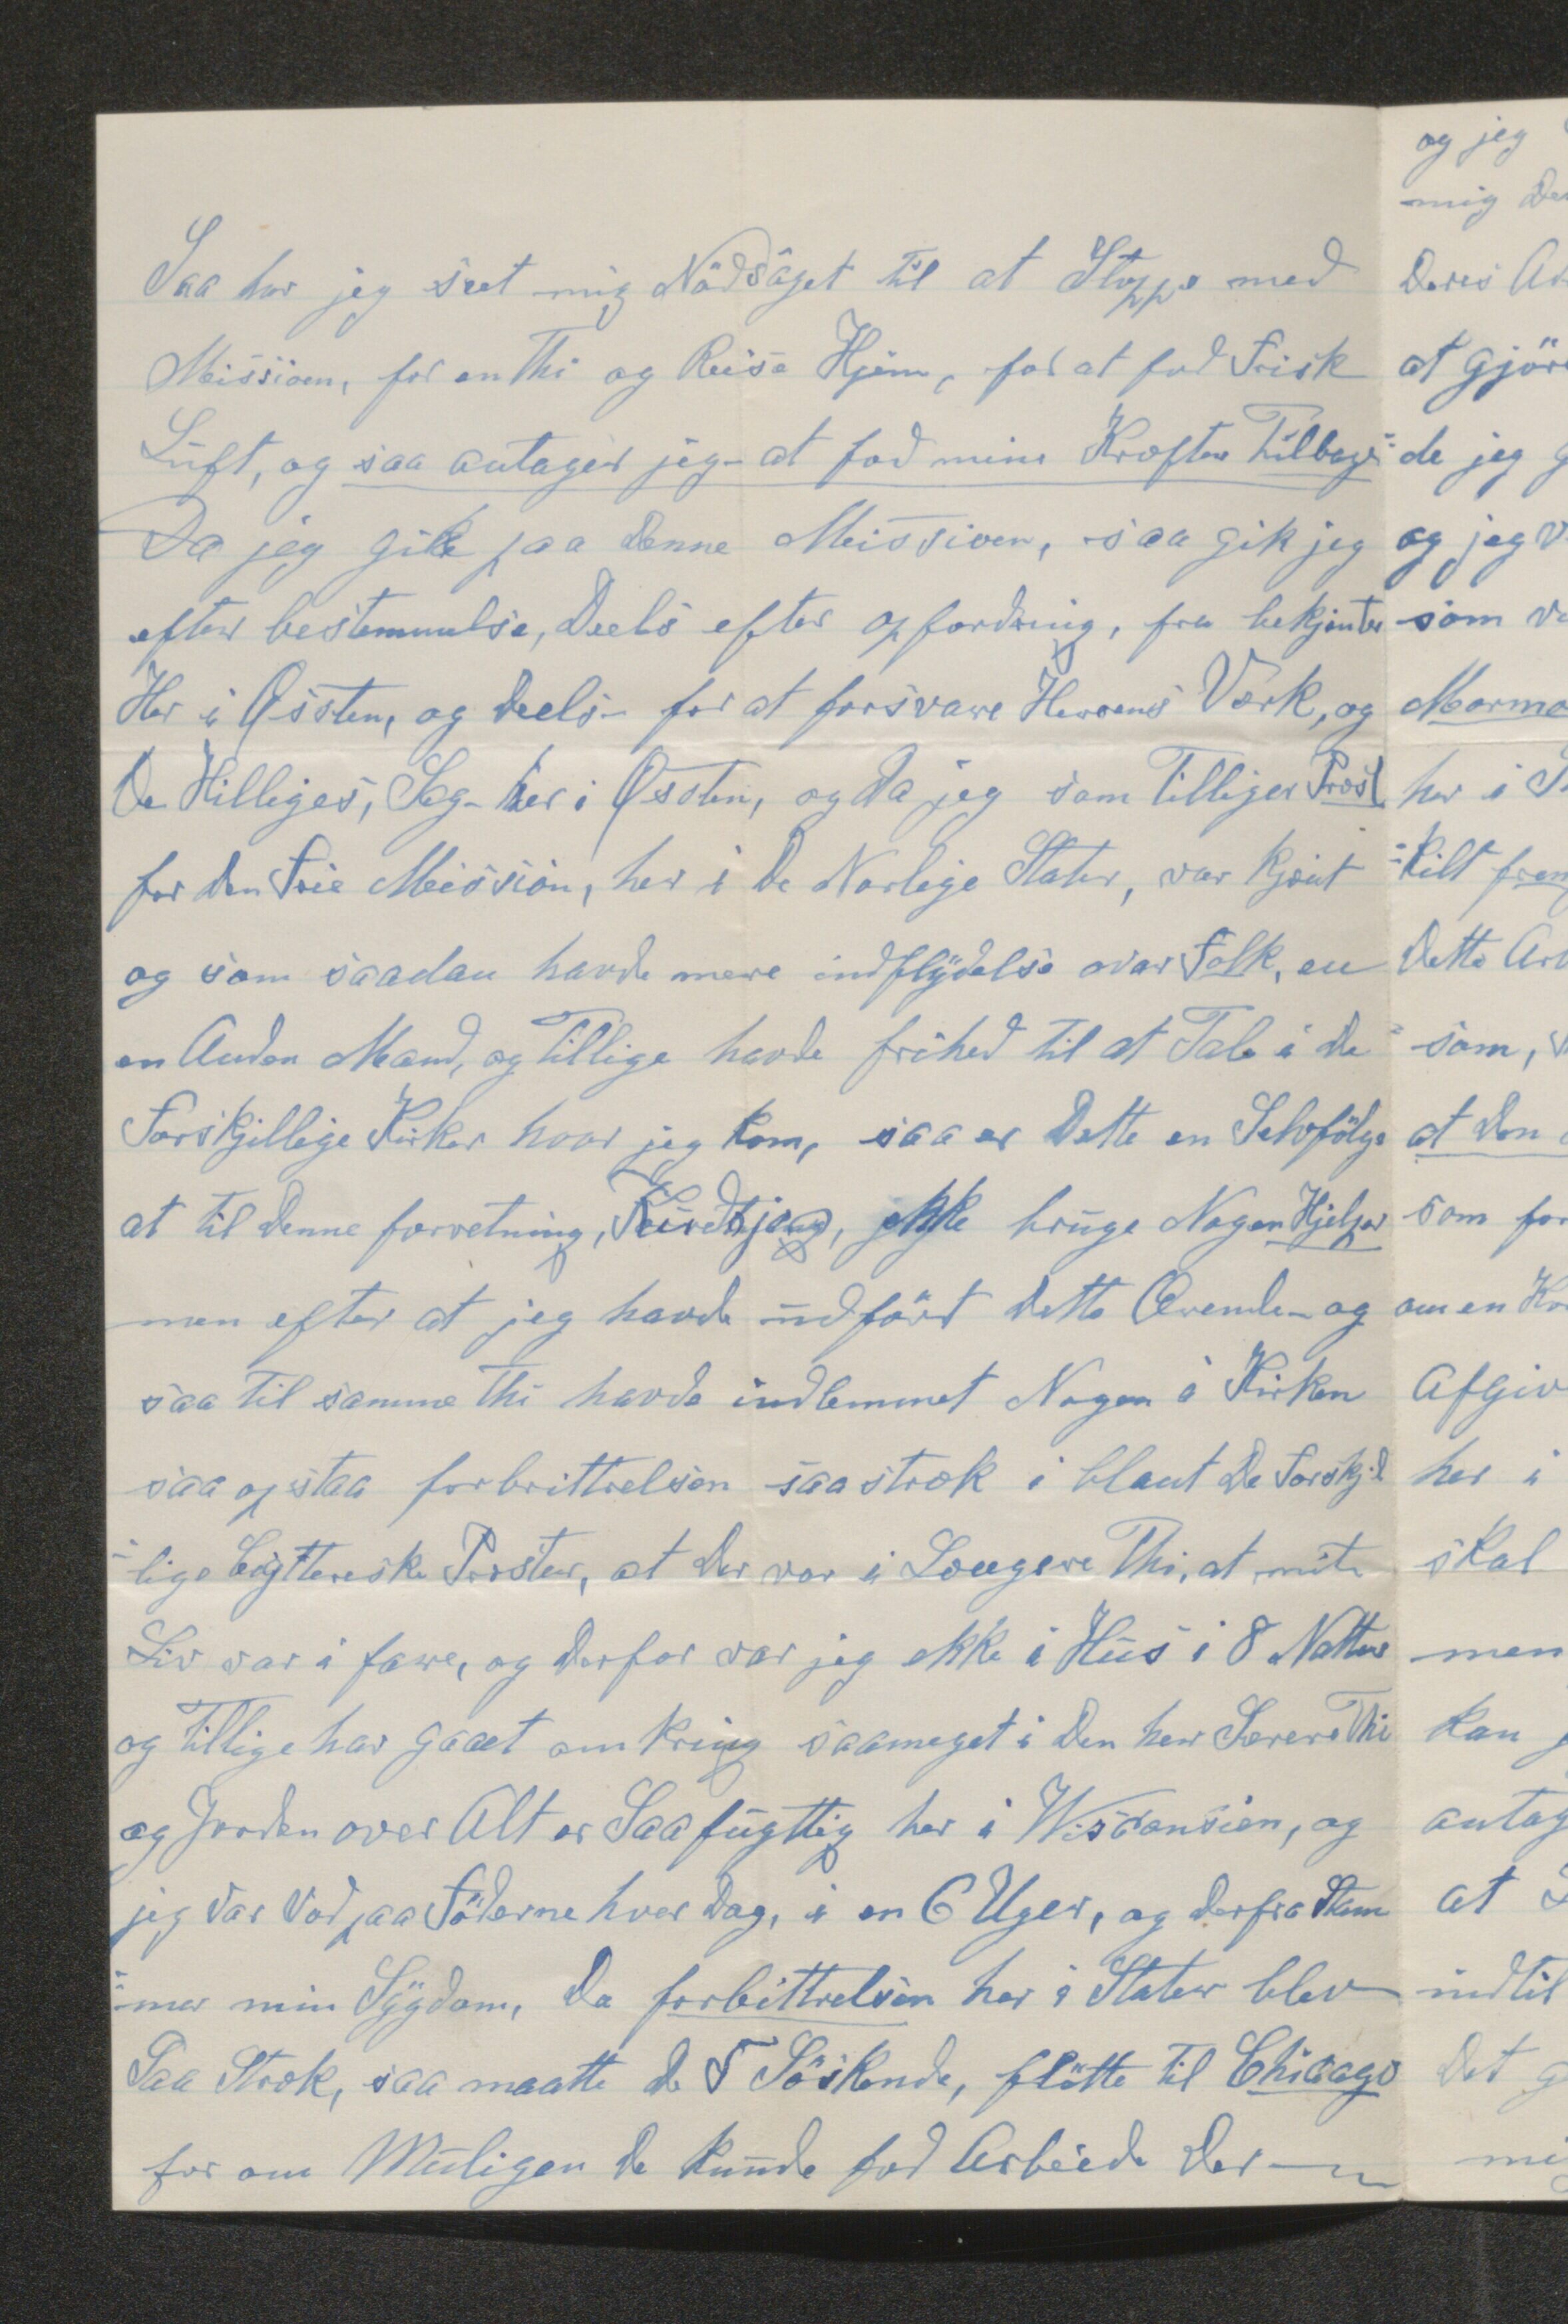 Saa har jeg seet mig Nödsaget til at Stoppe med
Meissioen, for en Thi og Reise Hjem, for at faa Frisk
Luft, og saa antager jeg - at faa mine Kræfter Tilbage
Da jeg gik paa denne Meissioen, saa gik jeg
efter bestemmelse, Deels efter opfordring, fra bekjenter
Her i Østen, og deels - for at forsvare Herrens Værk, og
De Hilliges, Sag - her i Østen, og da jeg som Tilliger Præst
for den Frie Meission, her i De Norlige Stater, var kjent
og som saadan havde mere indflydelse over Folk, en
en Anden Mand, og Tillige havde frihed til at Tale i De
Forskjellige Kirker hvor jeg kom, saa er Dette en Selvfölge
at til denne forretning, ikke bruge Nogen Hjelper
men efter at jeg havde udfört dette Ærende - og
saa til samme Thi havde indlemmet Nogen i Kirken
saa opstaa forbrittrelsen saa stræk i blant De Forskjel
lige Præster, at der var i Længere Thi, at mit
Liv var i fare, og derfor var jeg ekke i Hus i 8 Natter
og Tillige har gaaet omkring saameget i Den her Thi
og Jorden over Alt er Saa fugttig her i Wisconsien, og
jeg var Vod paa Föderne hver Dag, i en 6 Uger, og derfra Stam
mer min Sygdom, Da forbittrelsen her i Stater blev
Saa Stræk, saa maatte de 5 Söskende, flötte til Chicago
for om Muligen de kunde faa Arbeide Der —
og jeg
mig
Deres
at gjör
de jeg
og jeg
som
Mormo
her i
kilt
Dette Arb
som,
at Den
som for
om en
Afgiv
her i
skal
men
kan
antag
at
indtil
Det